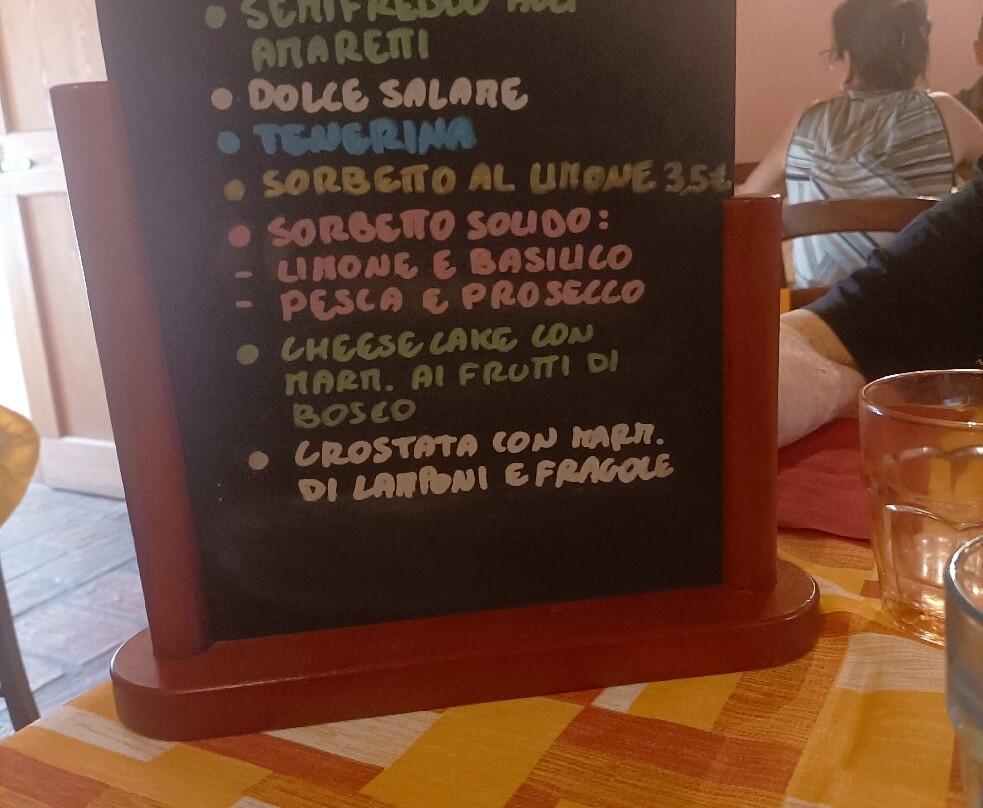 • SEMIFREDDO AGLI
AMARETTI
• DOLCE SALAME
• TENERINA
• SORBETTO AL LIMONE 3,5€
• SORBETTO SOLIDO:
- LIMONE E BASILICO
- PESCA E PROSECCO
• CHEESE CAKE CON
MARM. AI FRUTTI DI
BOSCO
• CROSTATA CON MARM.
DI LAMPONI E FRAGOLE